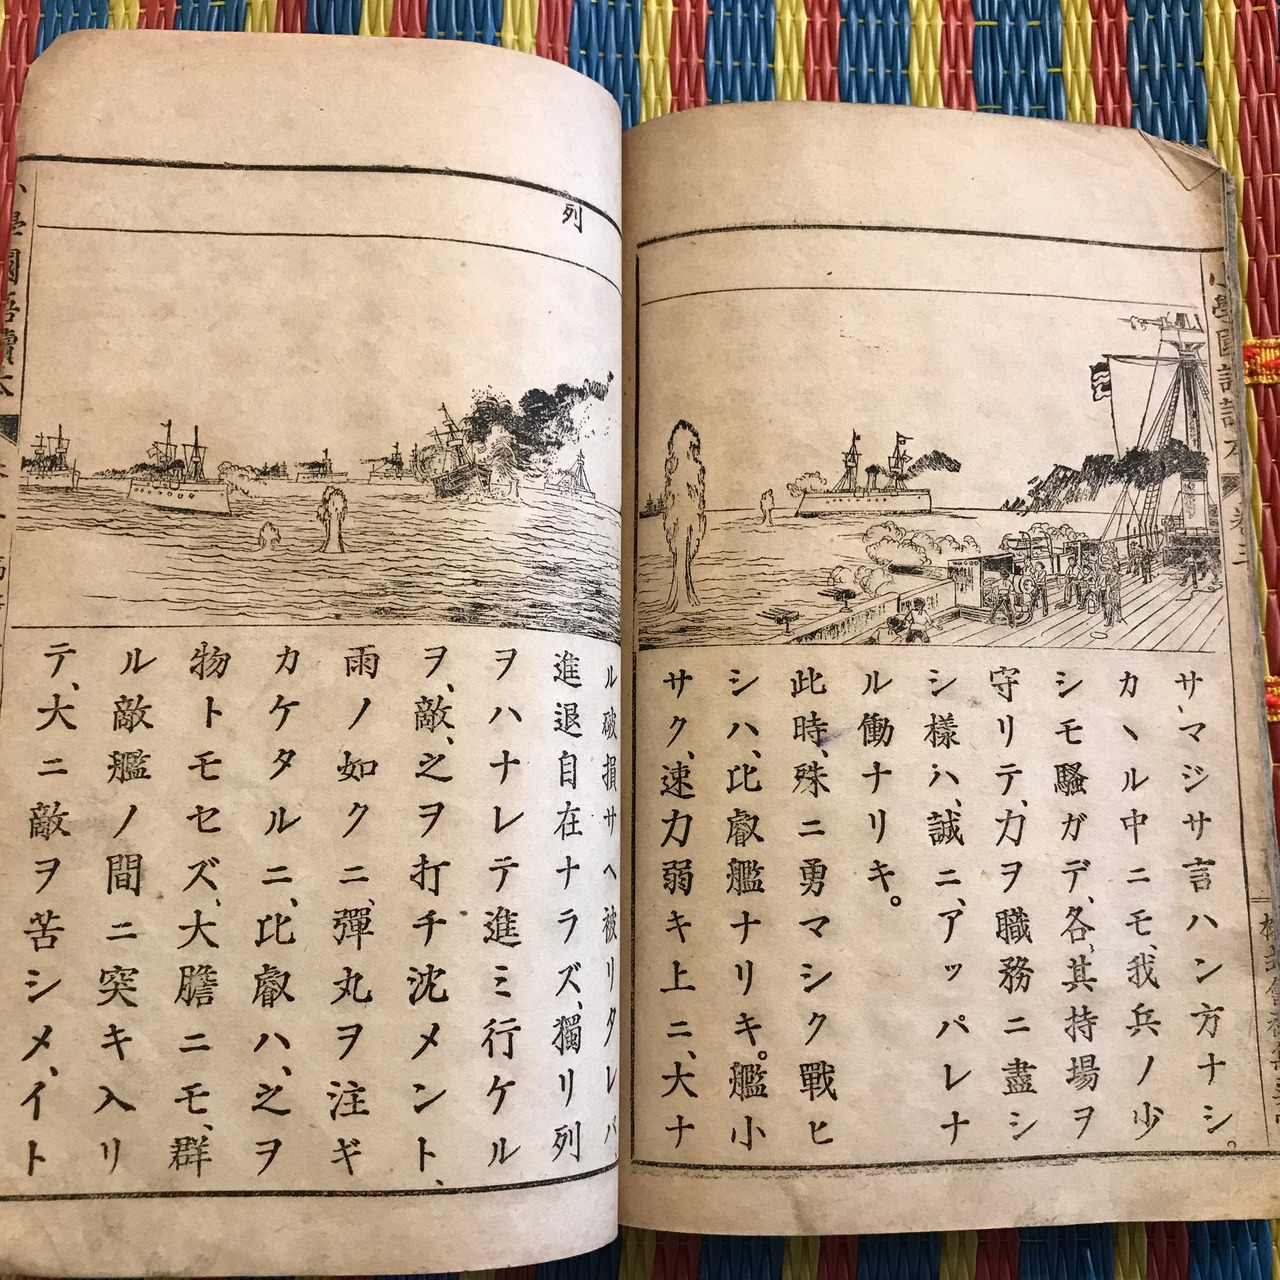 サマジサ言ハン方ナシ。
カヽル中ニモ、我兵ノ少
シモ騒ガデ、各、其持場ヲ
守リテ、力ヲ職務ニ盡シ
シ樣ハ、誠ニ、アッパレナ
ル働ナリキ。
此時、殊ニ勇マシク戰ヒ
シハ、比叡艦ナリキ。艦小
サク、速力弱キ上ニ、大ナ
列
ル破損サヘ被リタレバ、
進退自在ナラズ、獨リ列
ヲハナレテ進ミ行ケル
ヲ、敵、之ヲ打チ沈メント、
雨ノ如クニ、彈丸ヲ注ギ
カケタルニ、比叡ハ、之ヲ
物トモセズ、大膽ニモ、群
ル敵艦ノ間ニ突キ入リ
テ、大ニ敵ヲ苦シメ、イト
小學國語讀本